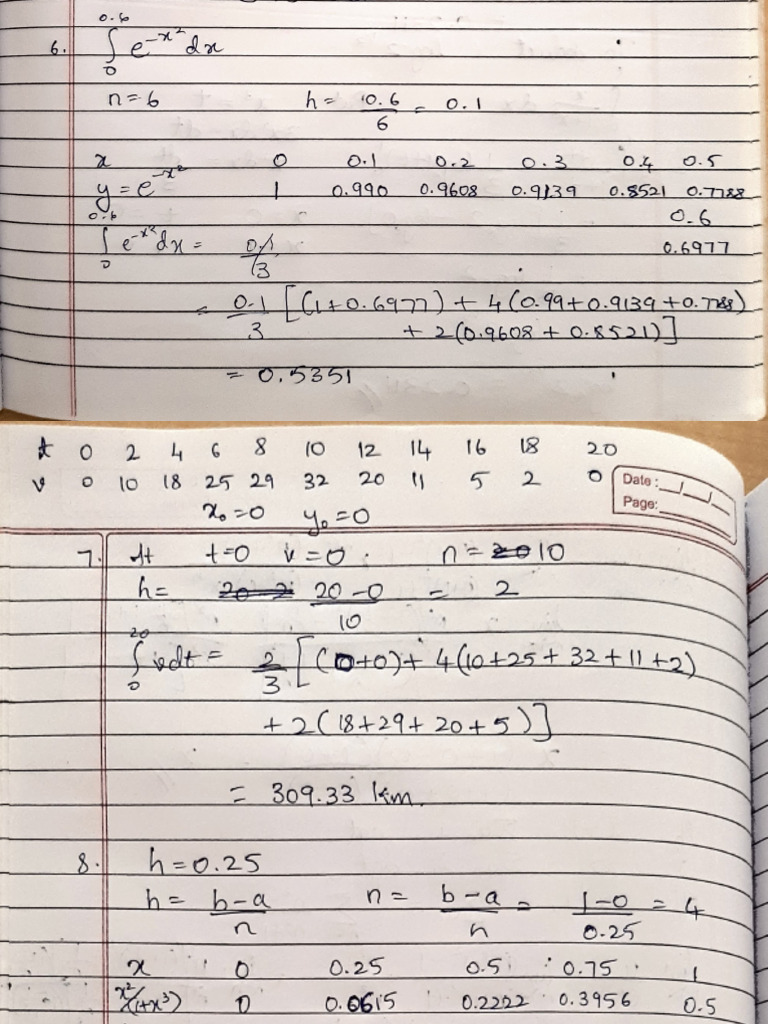 0.6
6. ∫ e^-x² dx
0
n=6 h= 0.6/6 = 0.1
x 0 0.1 0.2 0.3 0.4 0.5
y=e^-x² 1 0.990 0.9608 0.9139 0.8521 0.7788
0.6 0.6
∫ e^-x² dx = 0.1/3 0.6977
0
= 0.1/3 [(1+0.6977) + 4(0.99+0.9139+0.7788)
+ 2(0.9608 + 0.8521)]
= 0.5351
t 0 2 4 6 8 10 12 14 16 18 20
v 0 10 18 25 29 32 20 11 5 2 0
Date: __/__/__
Page:
x₀=0 y₀=0
7. At t=0 v=0 n= 20 10
h= 20-2 20-0/10 = 2
20
∫ vdt = 2/3 [(0+0)+ 4(10+25+32+11+2)
0
+ 2(18+29+20+5)]
= 309.33 km.
8. h=0.25
h= b-a/n n= b-a/h = 1-0/0.25 = 4
x 0 0.25 0.5 0.75 1
x²/(1+x³) 0 0.0615 0.2222 0.3956 0.5